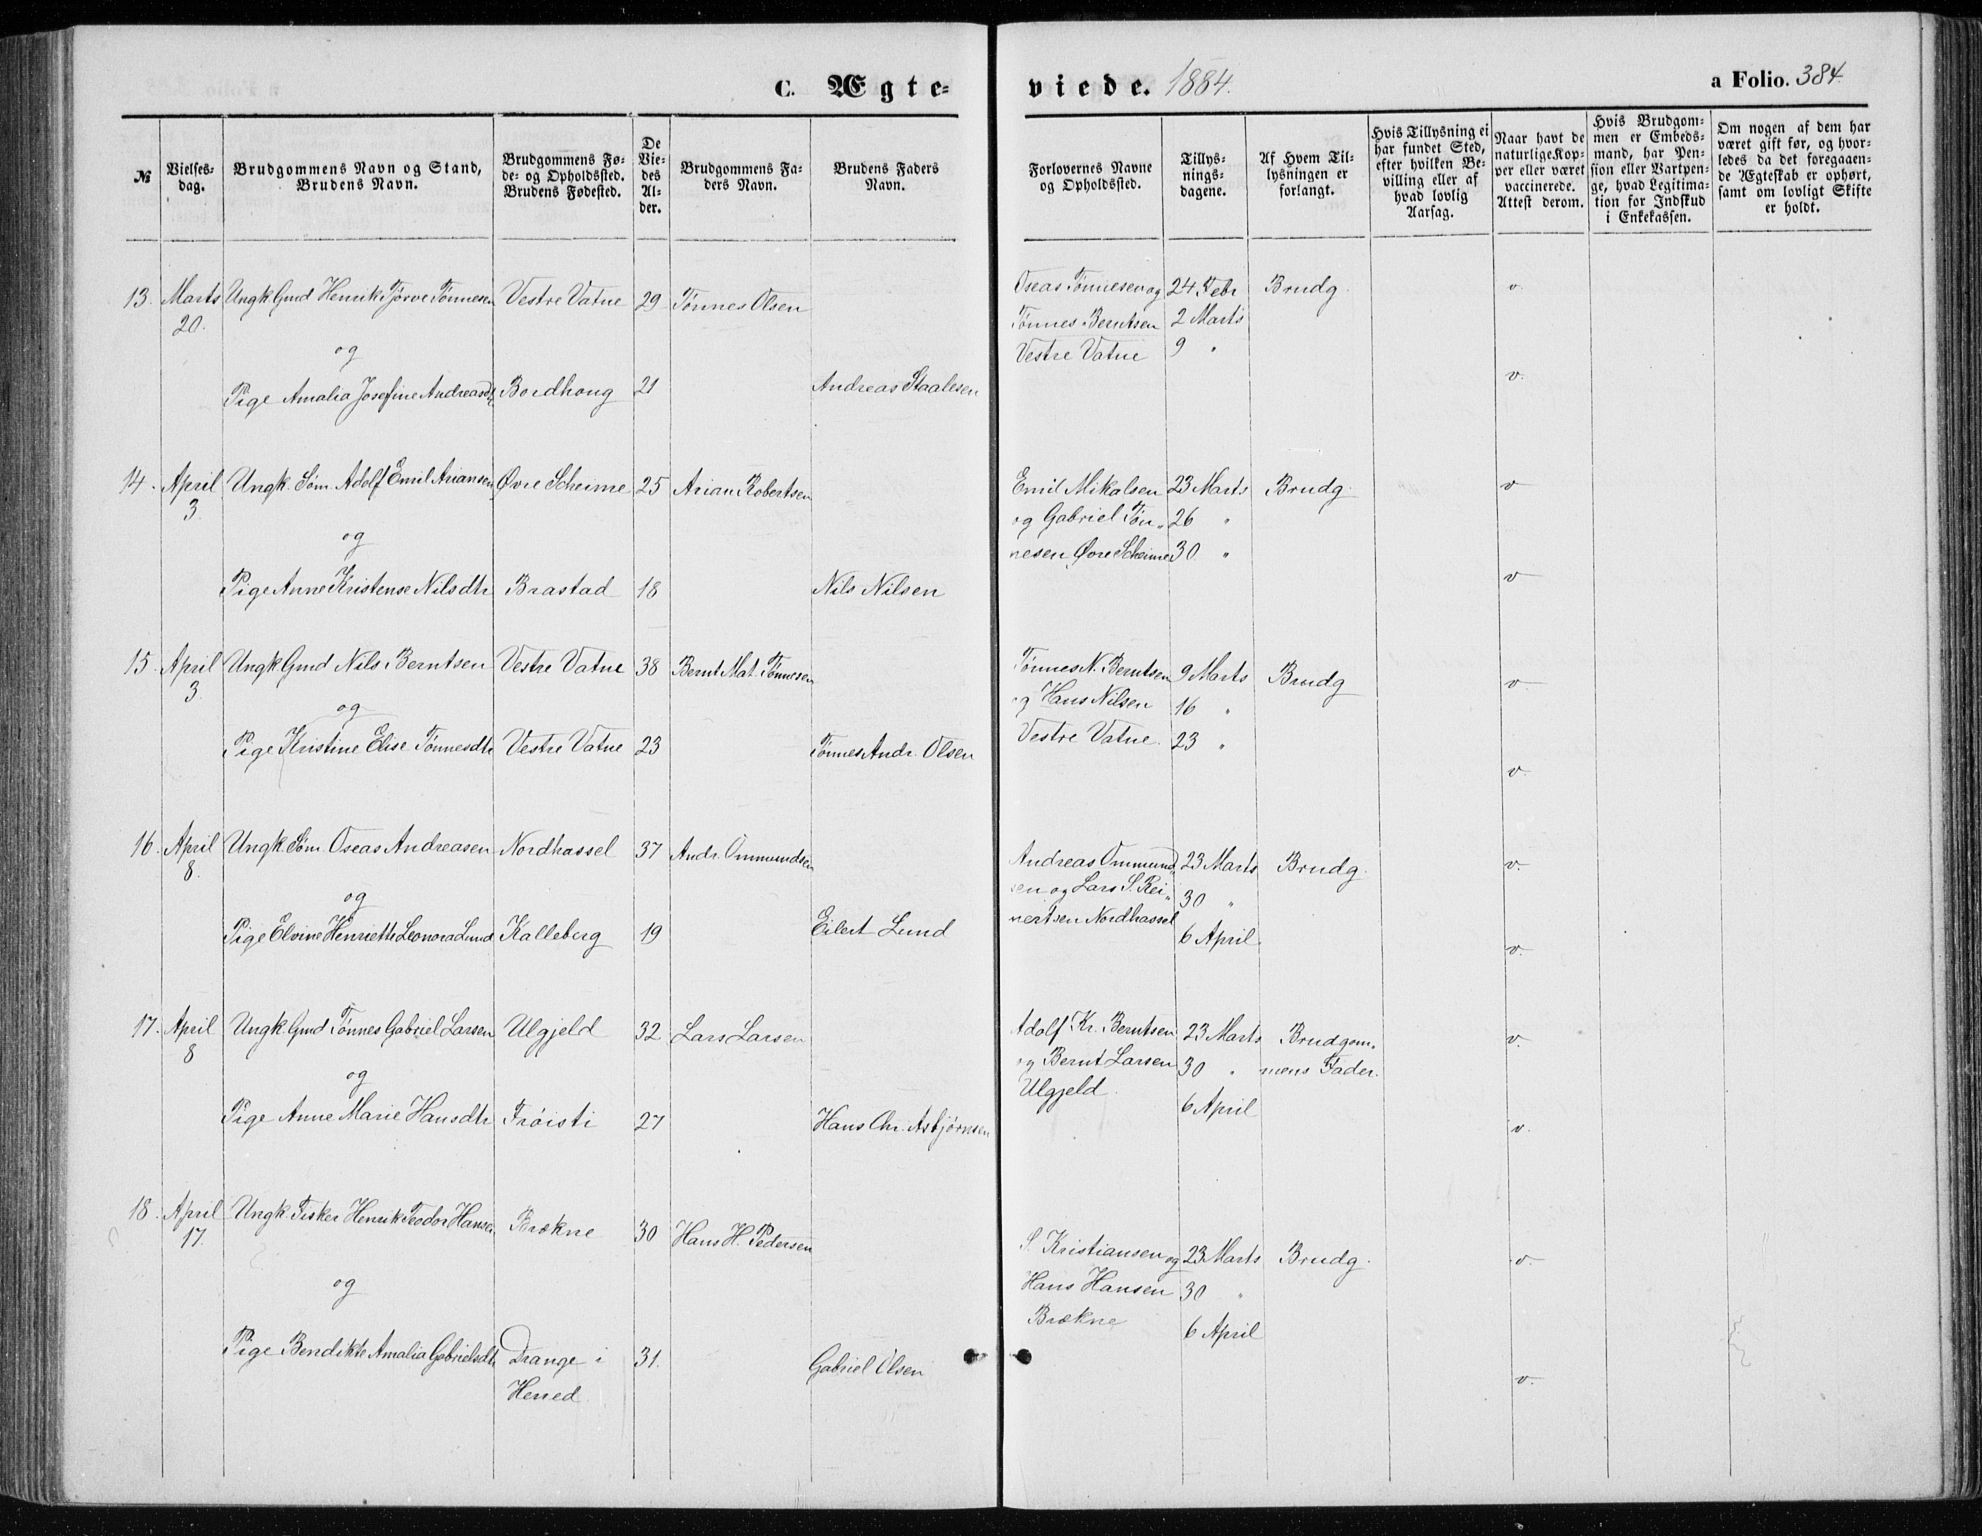 C. Ægte-
viede. 1884.
a Folio. 384.
№
Vielses-
dag.
Brudgommens Navn og Stand,
Brudens Navn.
Brudgommens Fø-
de- og Opholdssted.
Brudens Fødested.
De
Vie-
des
Al-
der.
Brudgommens Fa-
ders Navn.
Brudens Faders
Navn.
Forlovernes Navne
og Opholdssted.
Tillys-
nings-
dagene.
Af Hvem Til-
lysningen er
forlangt.
Hvis Tillysning ei
har fundet Sted,
efter hvilken Be-
villing eller af
hvad lovlig
Aarsag.
Naar havt de
naturlige Kop-
per eller været
vaccinerede.
Attest derom.
Hvis Brudgom-
men er Embeds-
mand, har Pen-
sion eller Vartpen-
ge, hvad Legitima-
tion for Indskud
i Enkekassen.
Om nogen af dem har
været gift før, og hvor-
ledes da det foregaaen-
de Ægteskab er ophørt,
samt om lovligt Skifte
er holdt.
13. Marts Ungk. Gmd Henrik Tørve Tønnesen Vestre Vatne 29 Tønnes Olsen Oseas Tønnesen og 24 Febr Brudg. v.
20. Tønnes Berntsen 2 Marts
og Vestre Vatne 9 "
Pige Amalia Josefine Andreasdt Bordhoug 21 Andreas Staalesen v.
14. April Ungk. Søm. Adolf Emil Ariansen Øvre Scheime 25 Arian Robertsen Emil Mikalsen 23 Marts Brudg. v
3. og Gabriel Tøn- 26 "
og nesen Øvre Scheime 30 "
Pige Anne Kristense Nilsdtr Brastad 18 Nils Nilsen v
15. April Ungk Gmd Nils Berntsen Vestre Vatne 38 Bernt Mat. Tønnesen Tønnes N. Berntsen 9 Marts Brudg v.
3 og Hans Nilsen 16 "
og Vestre Vatne. 23 "
Pige Kristine Elise Tønnesdtr Vestre Vatne 23 Tønnes Andr. Olsen v.
16. April Ungk. Søm. Oseas Andreasen Nordhassel 37 Andr. Ommundsen Andreas Ommund 23 Marts Brudg. v.
8. sen og Lars S. Rei- 30 "
og nertsen Nordhassel
Pige Elvine Henriette Leonora Lund Kalleberg 19 Eilert Lund 6 April. v.
17. April Ungk. Gmd Tønnes Gabriel Larsen Ulgjeld 32 Lars Larsen Adolf Kr. Berntsen 23 Marts Brudgom- v.
8 og Bernt Larsen 30 " mens Fader.
og Ulgjeld. 6 April
Pige Anne Marie Hansdtr Frøisti 27 Hans Chr. Asbjørnsen v.
18. April Ungk. Fisker Henrik Teodor Hansen Brækne 30 Hans H. Pedersen S. Kristiansen og 23 Marts Brudg. v.
17. Hans Hansen 30 "
og Brækne 6 April
Pige Bendikte Amalia Gabrielsdtr Drange i 31. Gabriel Olsen v.
Herred.